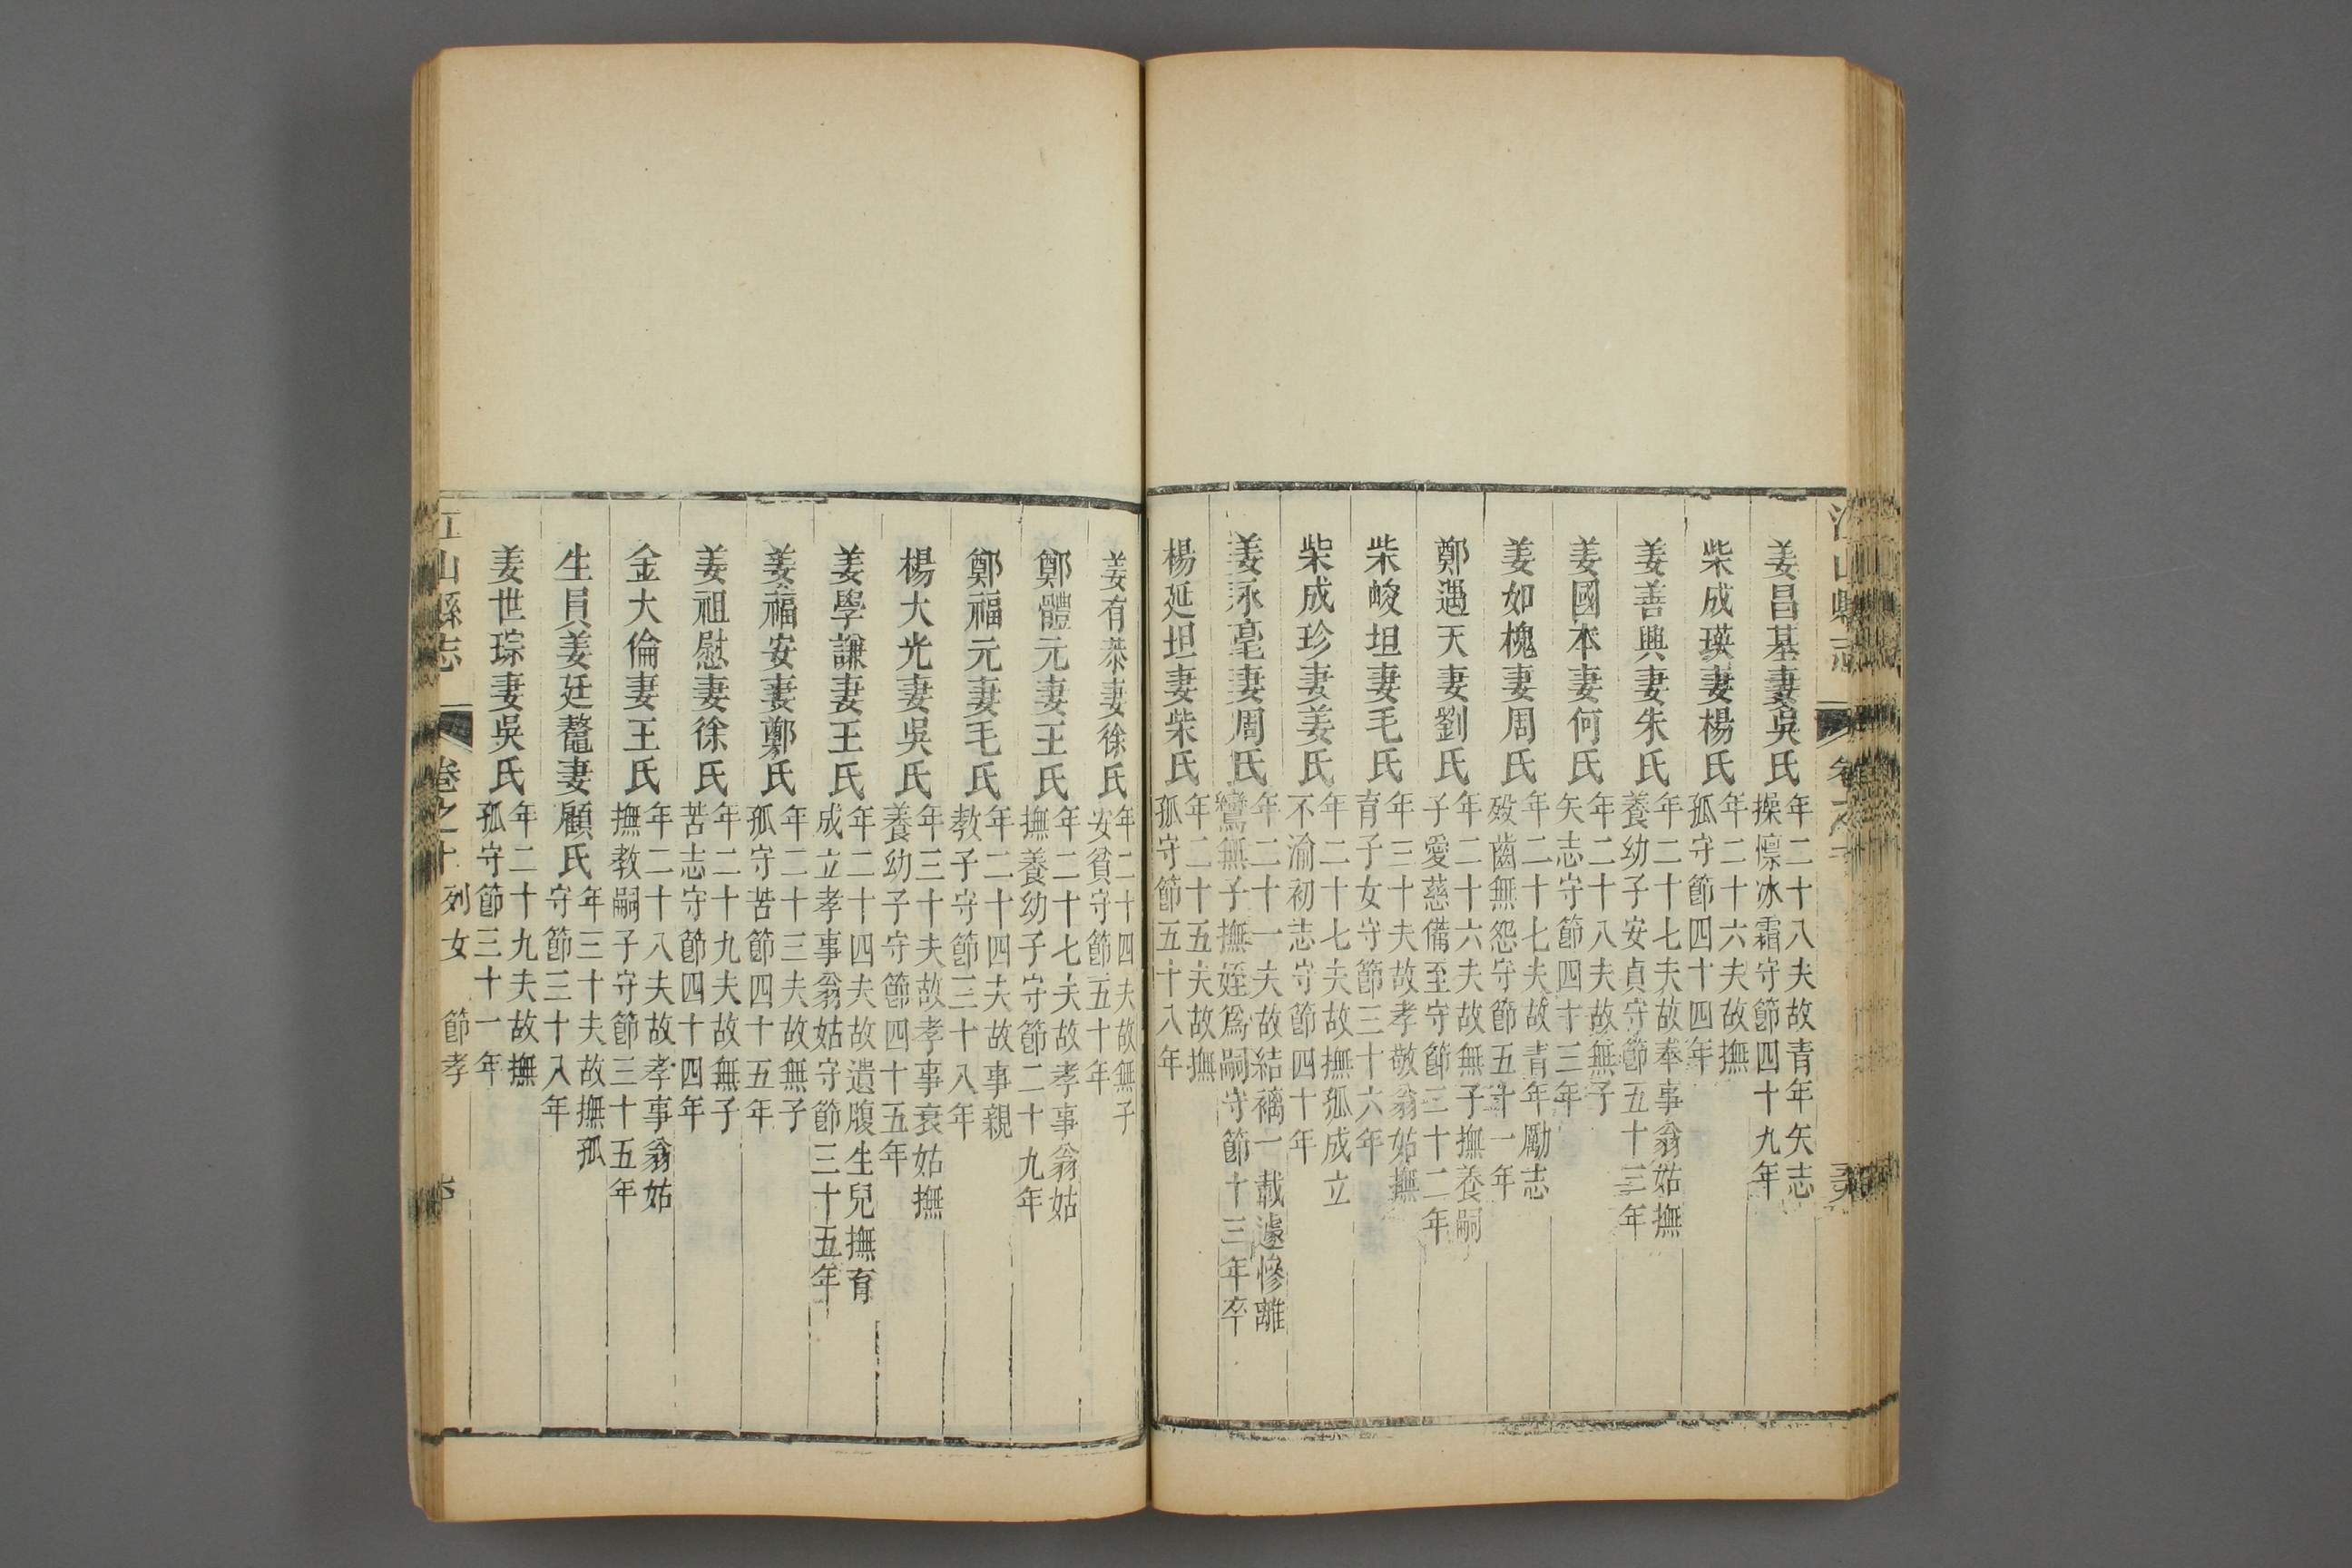 江山縣志
姜昌基妻吳氏年二十八夫故青年矢志操凛冰霜守節四十九年
柴成瑛妻楊氏年二十六夫故撫孤守節四十四年
姜善興妻朱氏年二十七夫故奉事翁姑撫養幼子安貞守節五十三年
姜國本妻何氏年二十八夫故無子矢志守節四十三年
姜如槐妻周氏年二十七夫故青年勵志殁齒無怨守節五十一年
鄭遇天妻劉氏年二十六夫故無子撫養嗣子愛慈備至守節三十二年
柴峻坦妻毛氏年三十夫故孝敬翁姑撫育子女守節三十六年
柴成珍妻姜氏年二十七夫故撫孤成立不渝初志守節四十年
姜永亳妻周氏年二十一夫故結褵一載遽慘離鸞無子撫姪爲嗣守節十三年卒
楊延坦妻柴氏年二十五夫故撫孤守節五十八年
姜有恭妻徐氏年二十四夫故無子安貧守節五十年
鄭體元妻王氏年二十七夫故孝事翁姑撫養幼子守節二十九年
鄭福元妻毛氏年二十四夫故事親教子守節三十八年
楊大光妻吳氏年三十夫故孝事衰姑撫養幼子守節四十五年
姜學謙妻王氏年二十四夫故遺腹生兒撫育成立孝事翁姑守節三十五年
姜福安妻鄭氏年二十三夫故無子孤守苦節四十五年
姜祖慰妻徐氏年二十九夫故無子苦志守節四十四年
金大倫妻王氏年二十八夫故孝事翁姑撫教嗣子守節三十五年
生員姜廷鼇妻顧氏年三十夫故撫孤守節三十八年
姜世琮妻吳氏年二十九夫故撫孤守節三十一年
江山縣志 卷之十 列女 節孝